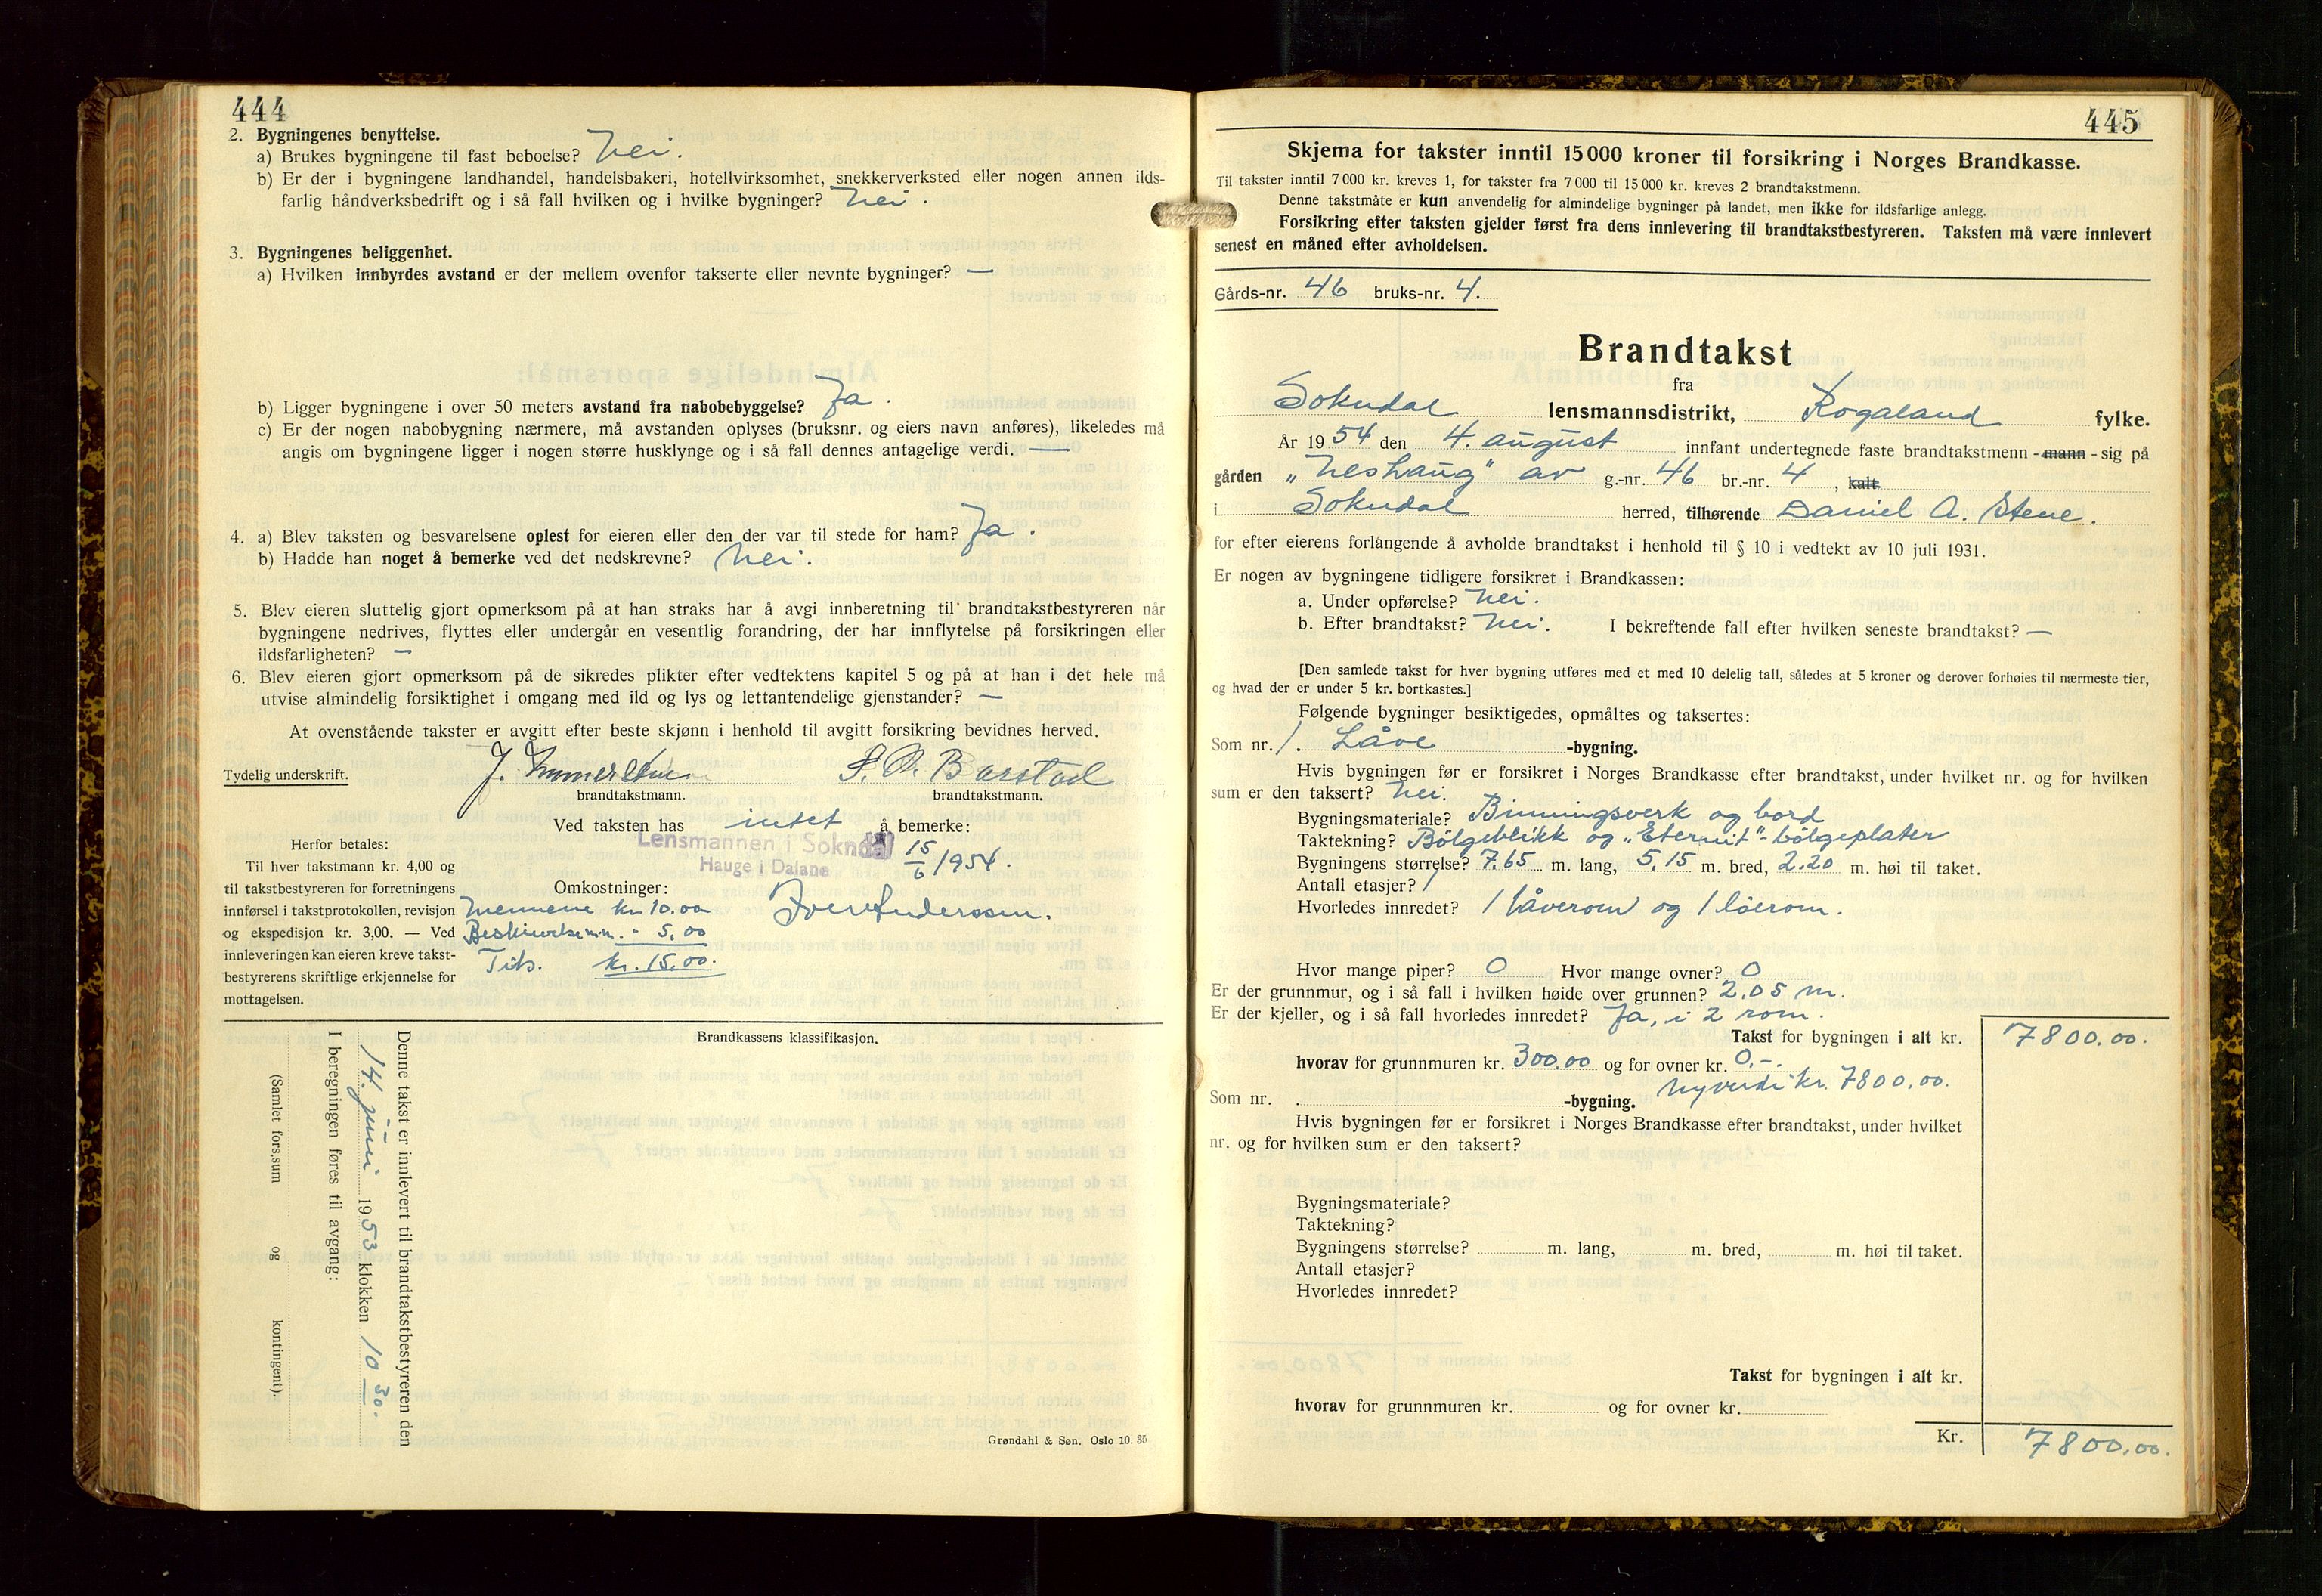 444
2. Bygningenes benyttelse.
a) Brukes bygningene til fast beboelse? Nei.
b) Er der i bygningene landhandel, handelsbakeri, hotellvirksomhet, snekkerverksted eller nogen annen ilds-
farlig håndverksbedrift og i så fall hvilken og i hvilke bygninger? Nei.
3. Bygningenes beliggenhet.
a) Hvilken innbyrdes avstand er der mellem ovenfor takserte eller nevnte bygninger? —
b) Ligger bygningene i over 50 meters avstand fra nabobebyggelse? Ja.
c) Er der nogen nabobygning nærmere, må avstanden oplyses (bruksnr. og eiers navn anføres), likeledes må
angis om bygningene ligger i nogen større husklynge og i så fall dennes antagelige verdi. —
4. a) Blev taksten og besvarelsene oplest for eieren eller den der var til stede for ham? Ja.
b) Hadde han noget å bemerke ved det nedskrevne? Nei.
5. Blev eieren sluttelig gjort opmerksom på at han straks har å avgi innberetning til brandtakstbestyreren når
bygningene nedrives, flyttes eller undergår en vesentlig forandring, der har innflytelse på forsikringen eller
ildsfarligheten? —
6. Blev eieren gjort opmerksom på de sikredes plikter efter vedtektens kapitel 5 og på at han i det hele må
utvise almindelig forsiktighet i omgang med ild og lys og lettantendelige gjenstander? —
At ovenstående takster er avgitt efter beste skjønn i henhold til avgitt forsikring bevidnes herved.
Tydelig underskrift.
brandtakstmann. brandtakstmann.
Ved taksten has intet å bemerke:
Lensmannen i Sokndal 15/6 1954.
Hauge i Dalane
Herfor betales:
Til hver takstmann kr. 4,00 og
til takstbestyreren for forretningens
innførsel i takstprotokollen, revisjon
og ekspedisjon kr. 3,00. — Ved
innleveringen kan eieren kreve takst-
bestyrerens skriftlige erkjennelse for
mottagelsen.
Omkostninger:
Mennene kr. 10.00
" 5,00
kr. 15.00.
Brandkassens klassifikasjon.
Denne takst er innlevert til brandtakstbestyreren den
14. juni 1953 klokken 10 30.
I beregningen føres til avgang:
(Samlet fors.sum og kontingent).
Grøndahl & Søn. Oslo 10. 35
445
Skjema for takster inntil 15 000 kroner til forsikring i Norges Brandkasse.
Til takster inntil 7 000 kr. kreves 1, for takster fra 7 000 til 15 000 kr. kreves 2 brandtakstmenn.
Denne takstmåte er kun anvendelig for almindelige bygninger på landet, men ikke for ildsfarlige anlegg.
Forsikring efter taksten gjelder først fra dens innlevering til brandtakstbestyreren. Taksten må være innlevert
senest en måned efter avholdelsen.
Gårds-nr. 46 bruks-nr. 4.
Brandtakst
fra
Sokndal lensmannsdistrikt, Rogaland fylke.
År 1954 den 4. august innfant undertegnede faste brandtakstmenn - mann - sig på
gården „Neshaug" av g.-nr. 46 br.-nr. 4, kalt
i Sokndal herred, tilhørende Daniel A. Stene.
for efter eierens forlangende å avholde brandtakst i henhold til § 10 i vedtekt av 10 juli 1931.
Er nogen av bygningene tidligere forsikret i Brandkassen:
a. Under opførelse? Nei.
b. Efter brandtakst? Nei. I bekreftende fall efter hvilken seneste brandtakst? —
[Den samlede takst for hver bygning utføres med et med 10 delelig tall, således at 5 kroner og derover forhøies til nærmeste tier,
og hvad der er under 5 kr. bortkastes.]
Følgende bygninger besiktigedes, opmåltes og taksertes:
Som nr. 1. Låve -bygning.
Hvis bygningen før er forsikret i Norges Brandkasse efter brandtakst, under hvilket nr. og for hvilken
sum er den taksert? Nei.
Bygningsmateriale? Binningsverk og bord
Taktekning? Bølgeblikk og „Eternit"-bølgeplater
Bygningens størrelse? 7.65 m. lang, 5.15 m. bred, 2.20 m. høi til taket.
Antall etasjer? 1
Hvorledes innredet? 1 låverom og 1 løerom.
Hvor mange piper? 0 Hvor mange ovner? 0
Er der grunnmur, og i så fall i hvilken høide over grunnen? 2.05 m.
Er der kjeller, og i så fall hvorledes innredet? Ja, i 2 rom.
Takst for bygningen i alt kr. 7800.00.
hvorav for grunnmuren kr. 300.00 og for ovner kr. 0.-
Nyverdi kr. 7800.00.
Som nr. -bygning.
Hvis bygningen før er forsikret i Norges Brandkasse efter brandtakst, under hvilket
nr. og for hvilken sum er den taksert?
Bygningsmateriale?
Taktekning?
Bygningens størrelse? m. lang, m. bred, m. høi til taket.
Antall etasjer?
Hvorledes innredet?
Takst for bygningen i alt kr.
hvorav for grunnmuren kr. og for ovner kr.
Kr. 7800.00.